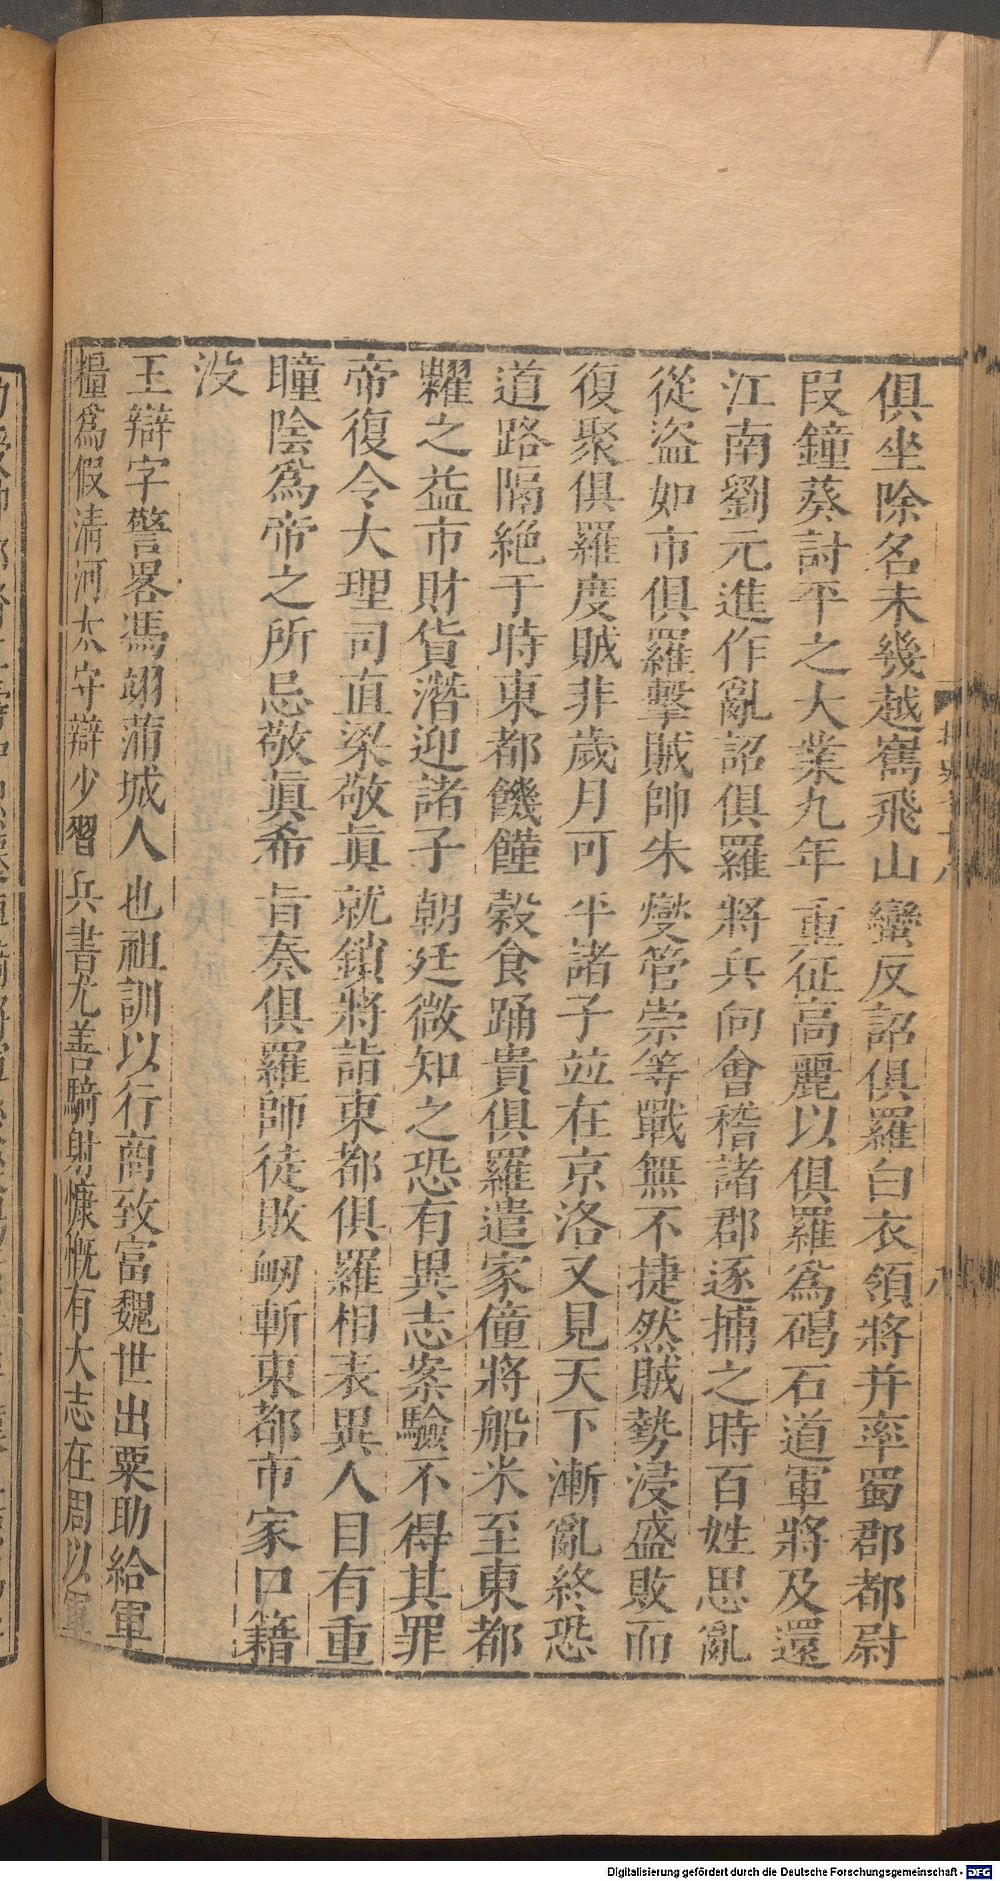 俱坐除名未幾越巂飛山蠻反詔俱羅白衣領將并率蜀郡都尉
段鐘葵討平之大業九年重征高麗以俱羅爲碣石道軍將及還
江南劉元進作亂詔俱羅將兵向會稽諸郡逐捕之時百姓思亂
從盜如市俱羅擊賊帥朱燮管崇等戰無不捷然賊勢浸盛敗而
復聚俱羅度賊非歲月可平諸子並在京洛又見天下漸亂終恐
道路隔絶于時東都饑饉穀食踊貴俱羅遣家僮將船米至東都
糶之益市財貨潛迎諸子朝廷微知之恐有異志案驗不得其罪
帝復令大理司直梁敬眞就鎖將詣東都俱羅相表異人目有重
瞳陰爲帝之所忌敬眞希旨奏俱羅師徒敗衂斬東都市家口籍
没
王辯字警畧馮翊蒲城人也祖訓以行商致富魏世出粟助給軍
糧爲假清河太守辯少習兵書尤善騎射慷慨有大志在周以軍
Digitalisierung gefördert durch die Deutsche Forschungsgemeinschaft - DFG